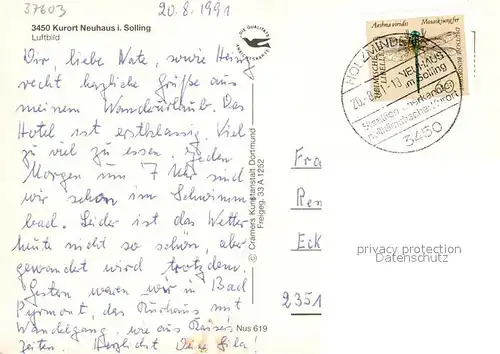 37603
20.8.1991
3450 Kurort Neuhaus i. Solling
Luftbild
DIE QUALITÄTS
Dir, liebe Nate, sowie Heinz
recht herzliche Grüße aus
meinem Wanderurlaub. Das
Hotel ist erstklassig. Viel
zu viel zu essen. Jeden
Morgen um 7 Uhr sind
wir schon im Schwimm
bad. Leider ist das Wetter
heute nicht so schön, aber
gewandert wird trotzdem.
Gestern waren wir in Bad
Pyrmont, das Kurhaus mit
Wandelgang, wie aus Kaisers
zeiten. Herzlichst Deine Gila!
© Cramers Kunstanstalt Dortmund
Freigeg. 33 A 1252
Nus 619
Aeshna viridis Mosaikjungfer
HEIMISCHE LIBELLEN
DEUTSCHE BUNDESPOST
HOLZMINDEN
20.-8.91-13
NEUHAUS
im Solling
heilklimatischer Kurort
3450
Fra
Ren
Eck
2351
privacy protection
Datenschutz